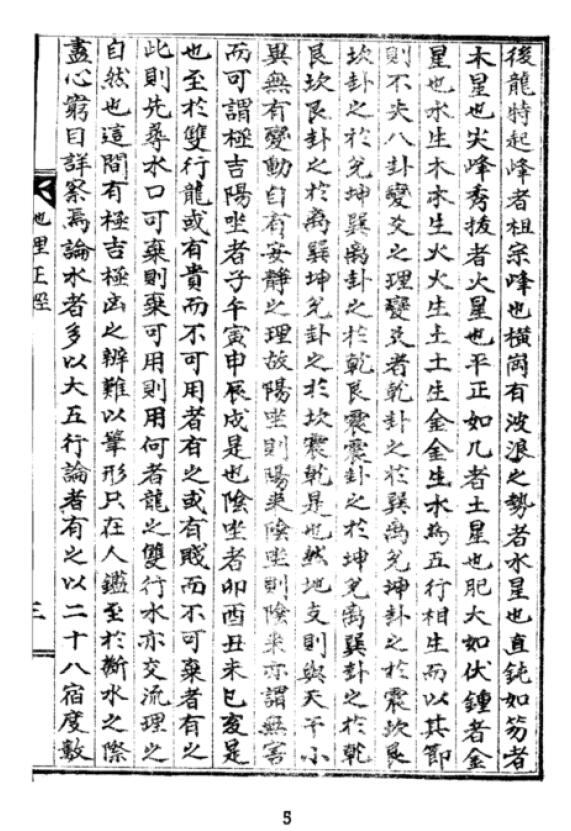 後龍特起峰者祖宗峰也橫崗有波浪之勢者水星也直鈍如笏者
木星也尖峰秀拔者火星也平正如几者土星也肥大如伏鍾者金
星也水生木木生火火生土土生金金生水為五行相生而以其節
則不失八卦變爻之理變爻者乾卦之於巽离兌坤卦之於震坎艮
坎卦之於兌坤巽离卦之於乾艮震震卦之於坤兌离巽卦之於乾
艮坎艮卦之於离巽坤兌卦之於坎震乾是也然地支則與天干小
異無有變動自有安靜之理故陽坐則陽來陰坐則陰來亦謂無害
而可謂極吉陽坐者子午寅申辰戌是也陰坐者卯酉丑未巳亥是
也至於雙行龍或有貴而不可用者有之或有賤而不可棄者有之
此則先尋水口可棄則棄可用則用何者龍之雙行水亦交流理之
自然也這間有極吉極凶之辨難以筆形只在人鑑至於斷水之際
盡心窮目詳察焉論水者多以大五行論者有之以二十八宿度數
地理正經
三
5